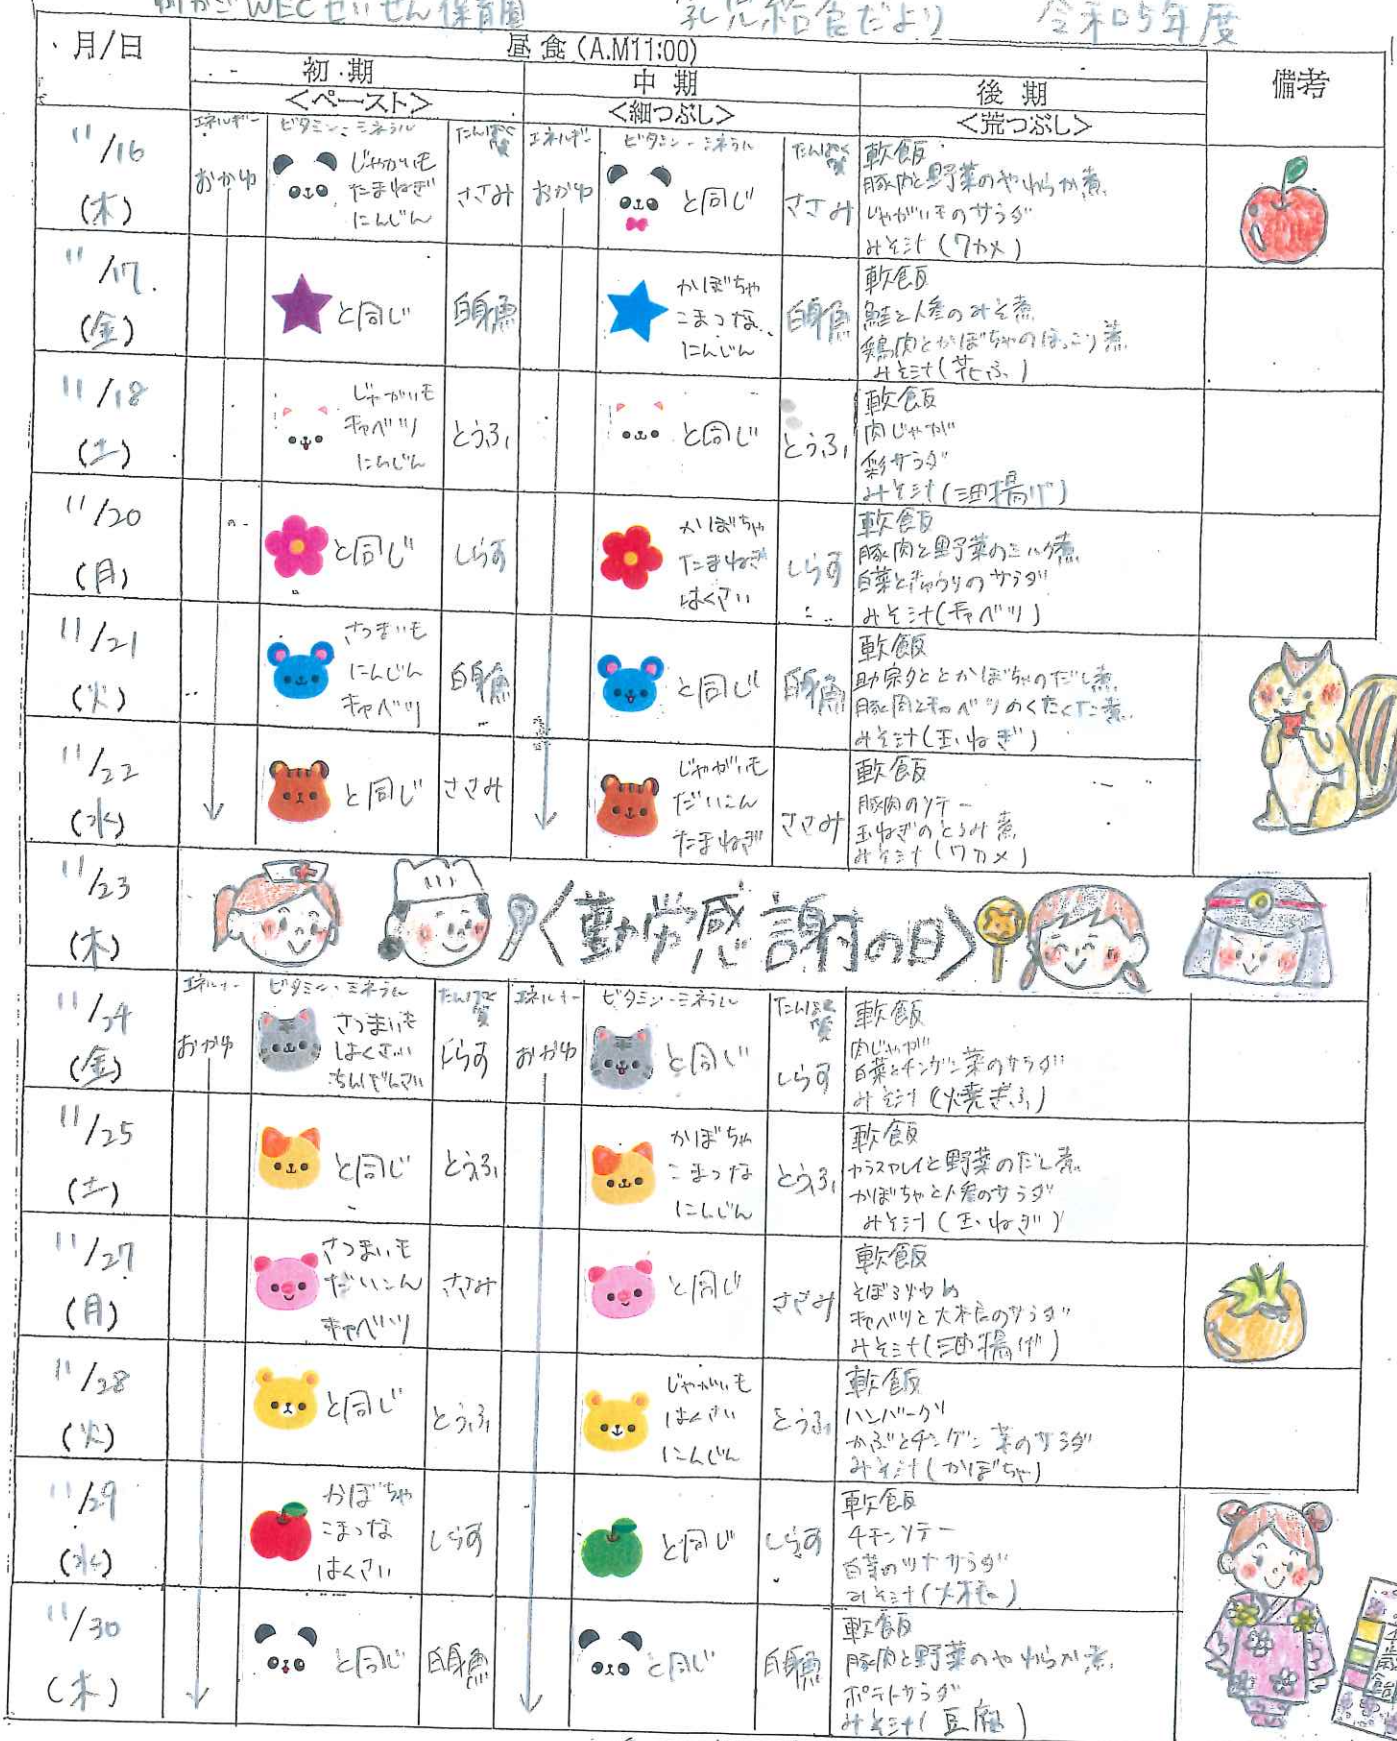 WECせいせん保育園 乳児給食だより 令和5年度
月/日 昼食(A.M11:00) 備考
初期 中期 後期
<ペースト> <細つぶし> <荒つぶし>
11/16 (木)
エネルギー ビタミン・ミネラル たんぱく質 エネルギー ビタミン・ミネラル たんぱく質
おかゆ
じゃがいも
たまねぎ
にんじん
ささみ
おかゆ
と同じ
ささみ
軟飯
豚肉と野菜のやわらか煮
じゃがいものサラダ
みそ汁(ワカメ)
11/17 (金)
と同じ
白身魚
かぼちゃ
こまつな
にんじん
白身魚
軟飯
鮭と人参のみそ煮
鶏肉とかぼちゃのほっこり煮
みそ汁(花ふ)
11/18 (土)
じゃがいも
キャベツ
にんじん
とうふ
と同じ
とうふ
軟飯
肉じゃが
彩サラダ
みそ汁(油揚げ)
11/20 (月)
と同じ
しらす
かぼちゃ
たまねぎ
はくさい
しらす
軟飯
豚肉と野菜のミルク煮
白菜ときゅうりのサラダ
みそ汁(キャベツ)
11/21 (火)
さつまいも
にんじん
キャベツ
白身魚
と同じ
白身魚
軟飯
助宗タラとかぼちゃのだし煮
豚肉とキャベツのくたくた煮
みそ汁(玉ねぎ)
11/22 (水)
と同じ
ささみ
じゃがいも
だいこん
たまねぎ
ささみ
軟飯
豚肉のソテー
玉ねぎのとろみ煮
みそ汁(ワカメ)
11/23 (木)
<勤労感謝の日>
11/24 (金)
エネルギー ビタミン・ミネラル たんぱく質 エネルギー ビタミン・ミネラル たんぱく質
おかゆ
さつまいも
はくさい
ちんげんさい
しらす
おかゆ
と同じ
しらす
軟飯
肉じゃが
白菜とチンゲン菜のサラダ
みそ汁(焼きふ)
11/25 (土)
と同じ
とうふ
かぼちゃ
こまつな
にんじん
とうふ
軟飯
カラスカレイと野菜のだし煮
かぼちゃと人参のサラダ
みそ汁(玉ねぎ)
11/27 (月)
さつまいも
だいこん
キャベツ
ささみ
と同じ
ささみ
軟飯
そぼろ炒め
キャベツと大根のサラダ
みそ汁(油揚げ)
11/28 (火)
と同じ
とうふ
じゃがいも
はくさい
にんじん
とうふ
軟飯
ハンバーグ
かぶとチンゲン菜のサラダ
みそ汁(かぼちゃ)
11/29 (水)
かぼちゃ
こまつな
はくさい
しらす
と同じ
しらす
軟飯
チキンソテー
白菜のツナサラダ
みそ汁(大根)
11/30 (木)
と同じ
白身魚
と同じ
白身魚
軟飯
豚肉と野菜のやわらか煮
ポテトサラダ
みそ汁(豆腐)